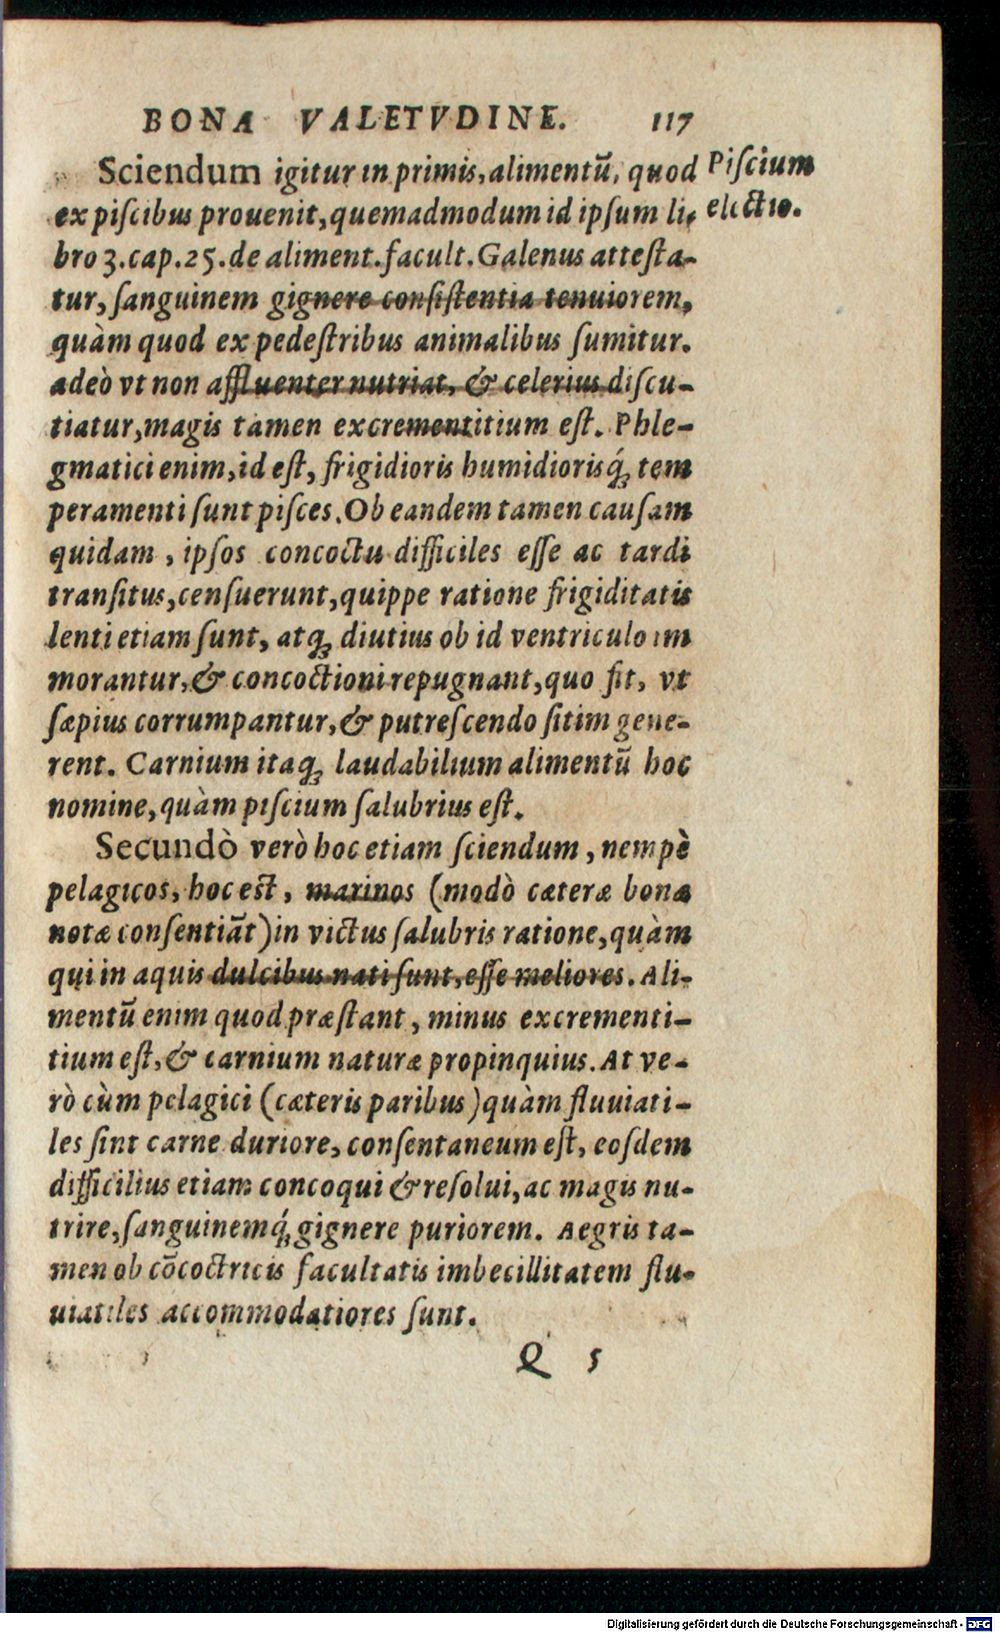 BONA VALETVDINE. 117
Sciendum igitur in primis, alimentũ, quod
Piſcium
ex piſcibus prouenit, quemadmodum id ipſum li-
electio.
bro 3. cap. 25. de aliment. facult. Galenus atteſta-
tur, ſanguinem gignere conſiſtentia tenuiorem,
quàm quod ex pedeſtribus animalibus ſumitur.
adeò vt non affluenter nutriat, & celerius diſcu-
tiatur, magis tamen excrementitium eſt. Phle-
gmatici enim, id eſt, frigidioris humidiorisq́ꝫ tem
peramenti ſunt piſces. Ob eandem tamen cauſam
quidam, ipſos concoctu difficiles eſſe ac tardi
tranſitus, cenſuerunt, quippe ratione frigiditatis
lenti etiam ſunt, atqꝫ diutius ob id ventriculo im
morantur, & concoctioni repugnant, quo fit, vt
ſæpius corrumpantur, & putreſcendo ſitim gene-
rent. Carnium itaqꝫ laudabilium alimentũ hoc
nomine, quàm piſcium ſalubrius eſt.
Secundò verò hoc etiam ſciendum, nempè
pelagicos, hoc est, marinos (modò cæteræ bonæ
notæ conſentiãt) in victus ſalubris ratione, quàm
qui in aquis dulcibus nati ſunt, eſſe meliores. Ali-
mentũ enim quod præſtant, minus excrementi-
tium eſt, & carnium naturæ propinquius. At ve-
rò cùm pelagici (cæteris paribus) quàm fluuiati-
les ſint carne duriore, conſentaneum eſt, eoſdem
difficilius etiam concoqui & reſolui, ac magis nu-
trire, ſanguinemq́ꝫ gignere puriorem. Aegris ta-
men ob cõcoctricis facultatis imbecillitatem flu-
uiatiles accommodatiores ſunt.
Q 5
Digitalisierung gefördert durch die Deutsche Forschungsgemeinschaft - DFG